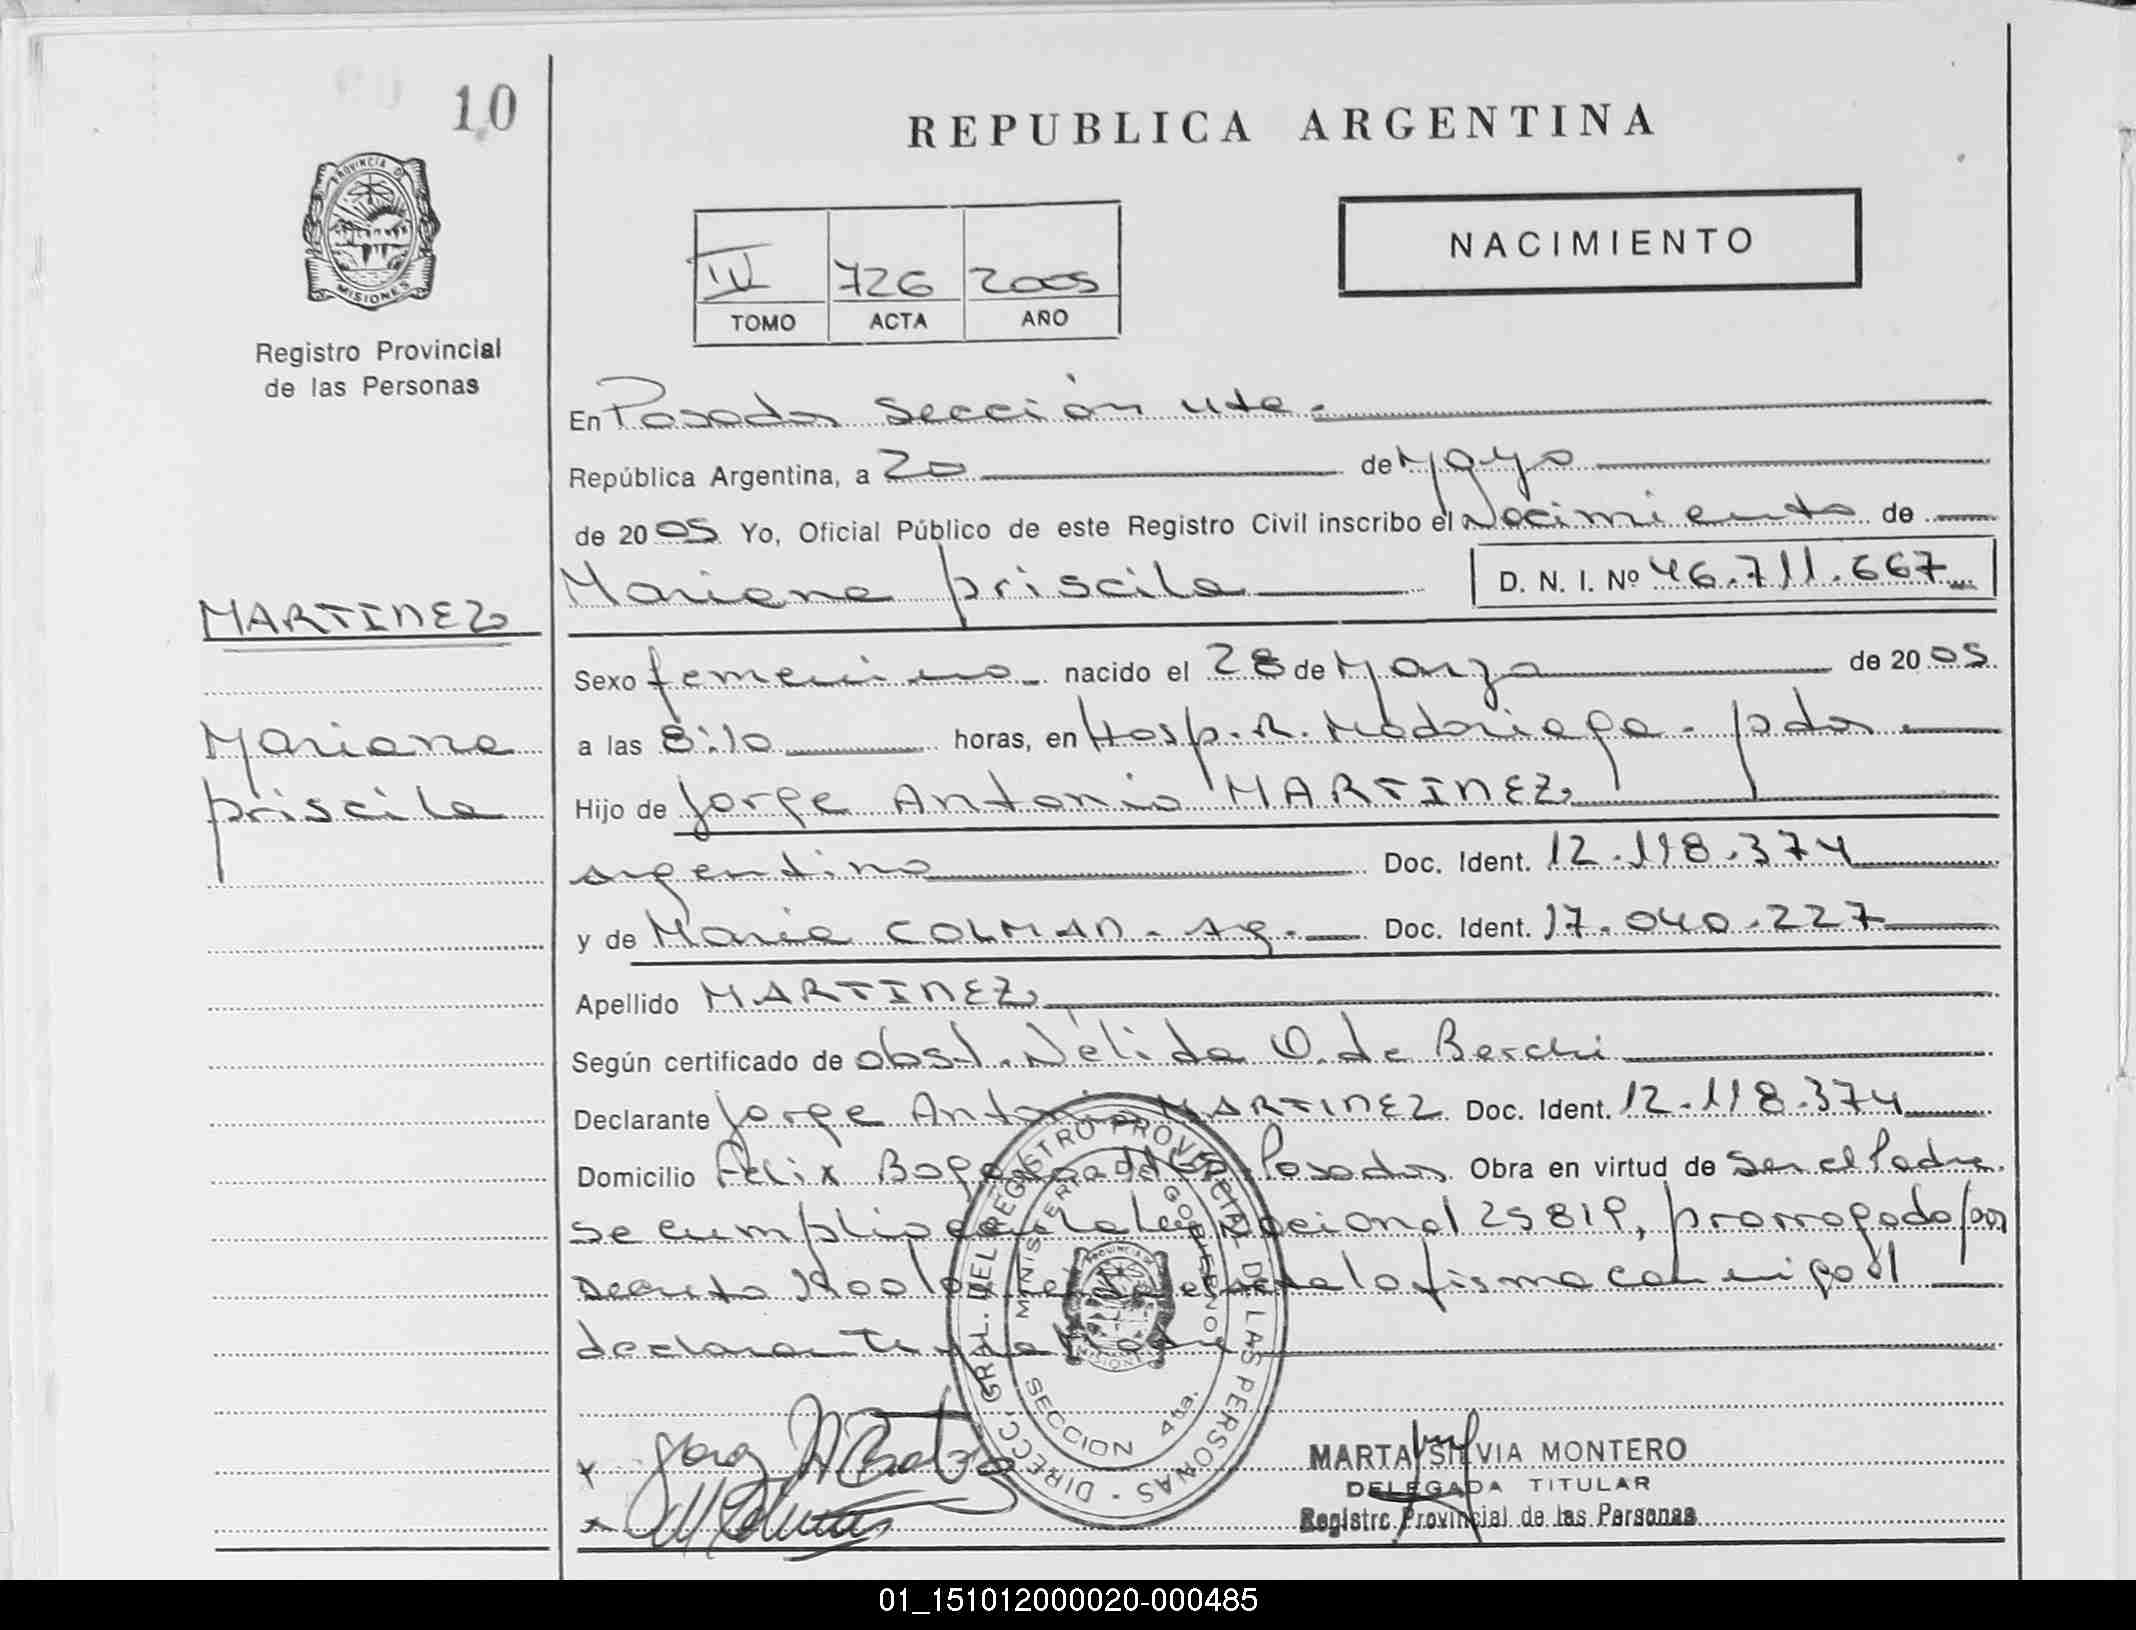 10
REPUBLICA ARGENTINA
PROVINCIA DE
MISIONES
Registro Provincial
de las Personas
NACIMIENTO
IV 726 2005
TOMO ACTA AÑO
En Posadas Sección 4ta.
República Argentina, a 20 de Mayo
de 2005 Yo, Oficial Público de este Registro Civil inscribo el Nacimiento de
Mariana priscila D. N. I. Nº 46.711.667
MARTINEZ
Mariana
priscila
Sexo femenino nacido el 28 de Marzo de 2005
a las 8:10 horas, en Hosp. R. Madariaga - pdas
Hijo de Jorge Antonio MARTINEZ
argentino Doc. Ident. 12.118.374
y de Maria COLMAN - Ag. Doc. Ident. 17.040.227
Apellido MARTINEZ
Según certificado de obst. Nélida O. de Berchi
Declarante Jorge Antonio MARTINEZ Doc. Ident. 12.118.374
Domicilio Felix Bogado Posadas Obra en virtud de Ser el Padre.
Se cumplio con la ley Nacional 25819, prorrogado por
Decreto firma conmigo el
declarante y la Madre
DIRECC. GRAL. DEL REGISTRO PROVINCIAL DE LAS PERSONAS -
MINISTERIO DE GOBIERNO
SECCION 4ta.
MARTA SILVIA MONTERO
DELEGADA TITULAR
Registro Provincial de las Personas
01_151012000020-000485